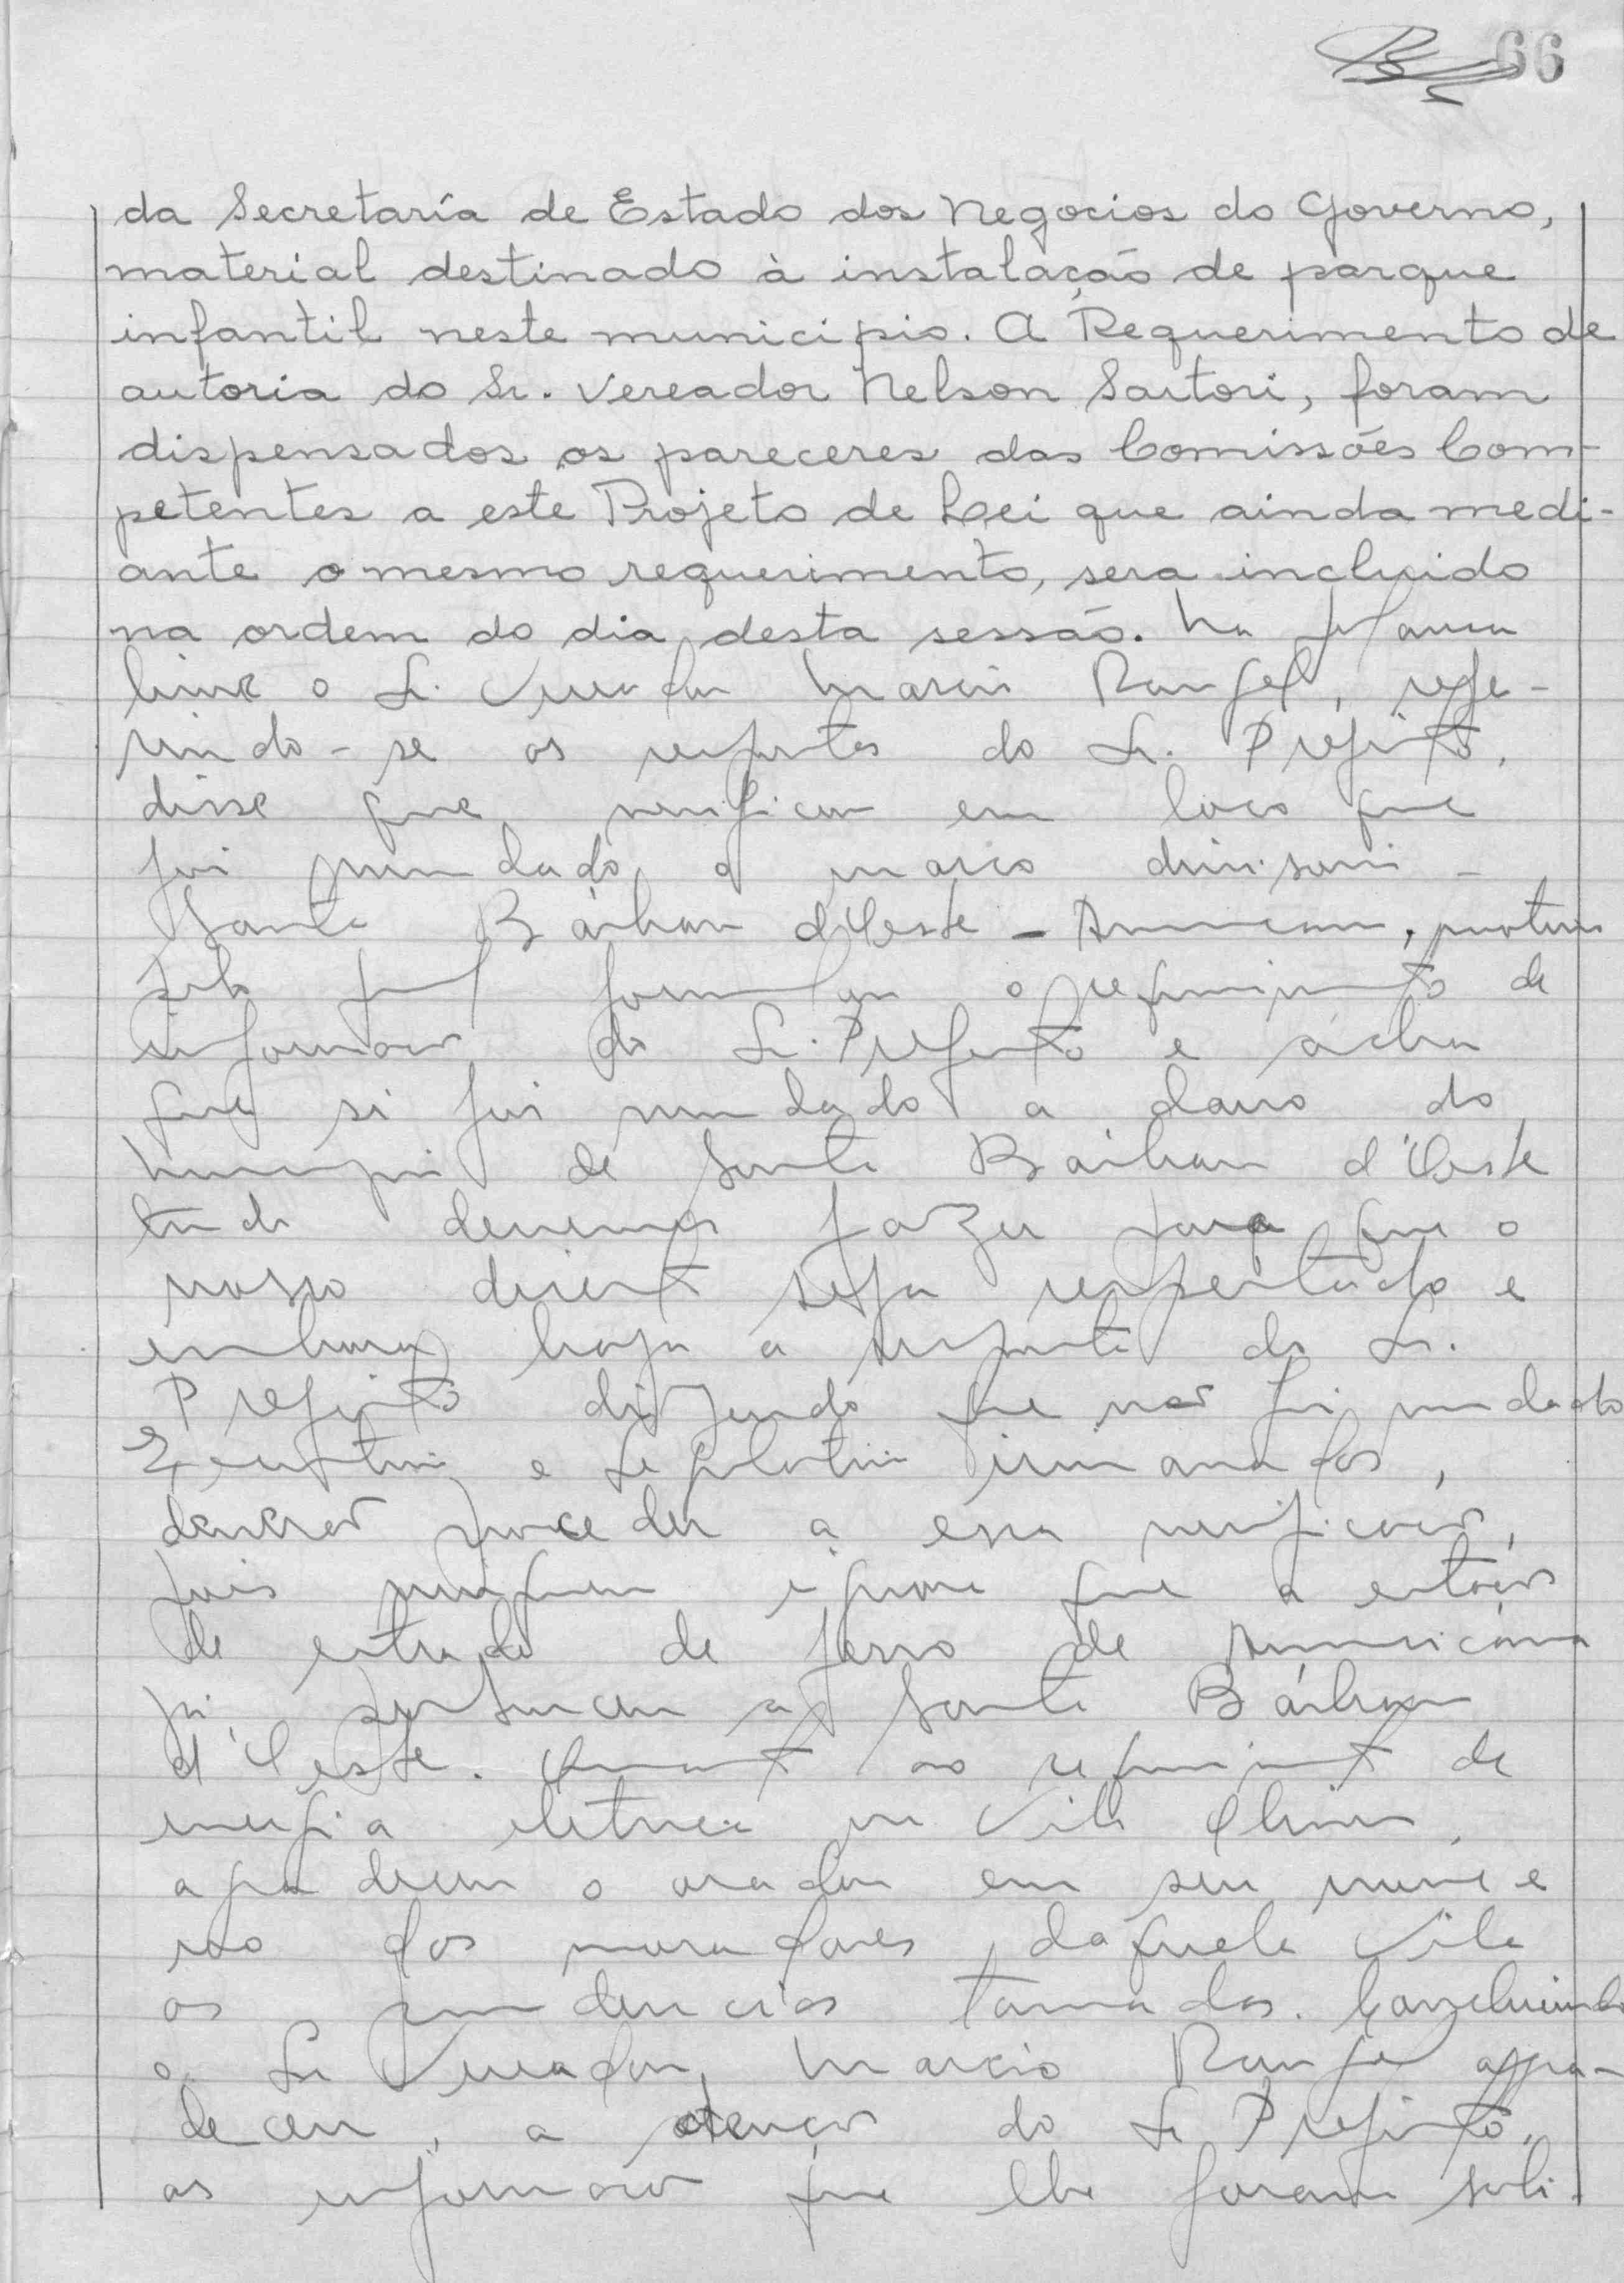 66
da Secretaría de Estado dos Negocios do Governo,
material destinado à instalação de parque
infantil neste municipio. A Requerimento de
autoria do Sr. Vereador Nelson Sartori, foram
dispensados os pareceres das Comissões Com-
petentes a este Projeto de Lei que ainda medi-
ante o mesmo requerimento, sera incluido
na ordem do dia desta sessão. Na palavra
livre o Sr. Vereador Marcio Rangel, refe-
rindo-se as respostas do Sr. Prefeito,
disse que verificou em loco que
foi mudado o marco divisorio -
Santa Bárbara d'Oeste - Americana,
formulou o requerimento de
informação do Sr. Prefeito e acha
que si foi mudado a dano do
Municipio de Santa Bárbara d'Oeste
tudo devemos fazer para que o
nosso direito seja respeitado e
embora haja a resposta do Sr.
Prefeito dizendo que não foi mudado
Executivo e Legislativo irmanados,
deverão proceder a essa verificação,
pois ninguem ignora que a estação
de estrada de ferro de Americana
já pertenceu a Santa Bárbara
d'Oeste. Quanto ao requerimento de
energia eletrica na Vila
agradecem o orador em seu nome e
no dos moradores daquela Vila
as providencias tomadas. Concluindo
o Sr Vereador Marcio Rangel agra-
deceu, a atenção do Sr Prefeito,
as informação que lhe foram soli-